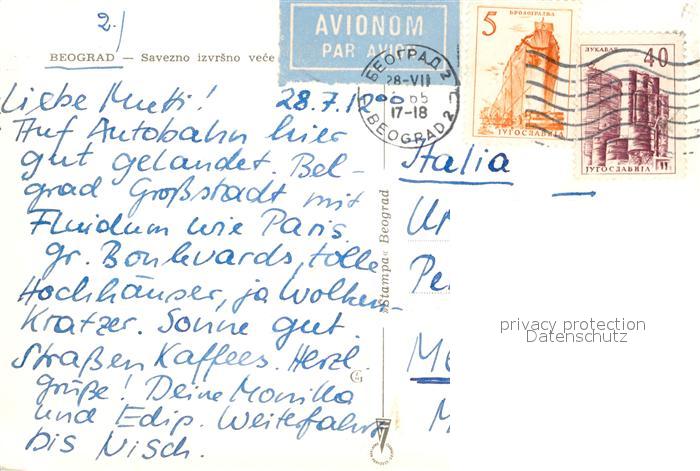 2.)
AVIONOM
PAR AVION
BEOGRAD — Savezno izvršno veće
БЕОГРАД 2
28-VII
65
17-18
BEOGRAD 2
5
БРОДОГРАДЊА
ЈУГОСЛАВИЈА
ЛУКАВАЦ
40
ЈУГОСЛАВИЈА
Liebe Mutti! 28.7. 12⁰⁰
Auf Autobahn hier
gut gelandet. Bel-
grad Großstadt mit
Fluidum wie Paris.
gr. Boulevards, tolle
Hochhäuser, ja Wolken-
Kratzer. Sonne gut.
Straßen Kaffees. Herzl.
grüße! Deine Monika
und Edip. Weiterfahrt
bis Nisch.
»Stampa« Beograd
Italia
Pe
Me
M
privacy protection
Datenschutz